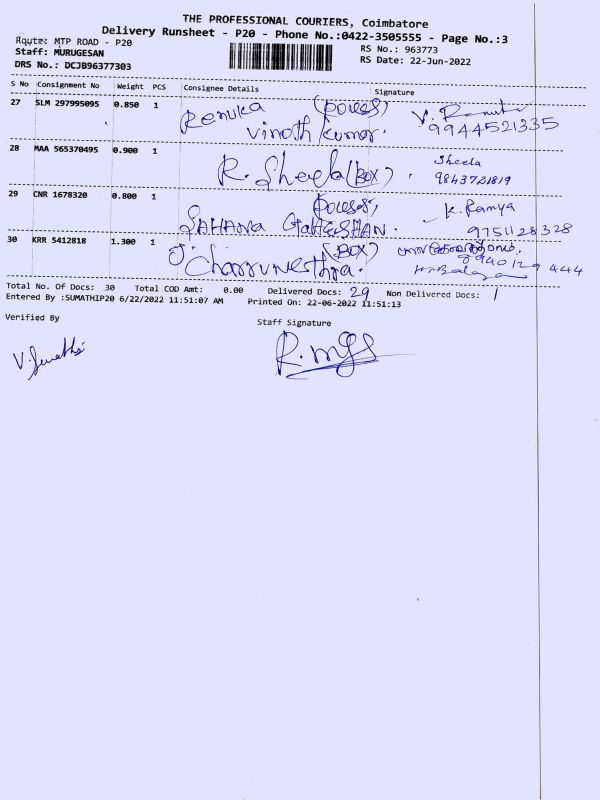 THE PROFESSIONAL COURIERS, Coimbatore
Delivery Runsheet - P20 - Phone No.:0422-3505555 - Page No.:3
Route: MTP ROAD - P20
Staff: MURUGESAN
DRS No.: DCJB96377303
RS No.: 963773
RS Date: 22-Jun-2022
S No Consignment No Weight PCS Consignee Details Signature
27 SLM 297995095 0.850 1 Renuka Vinoth Kumar. V. 9944521335
28 MAA 565370495 0.900 1 R. Sheela (BOX). Sheela 9843721819
29 CNR 1678320 0.800 1 SAHANA GANESHAN. K. Ramya 9751128328
30 KRR 5412818 1.300 1 (BOX) 8940129444
Total No. Of Docs: 30 Total COD Amt: 0.00 Delivered Docs: 29 Non Delivered Docs: 1
Entered By :SUMATHIP20 6/22/2022 11:51:07 AM Printed On: 22-06-2022 11:51:13
Verified By Staff Signature